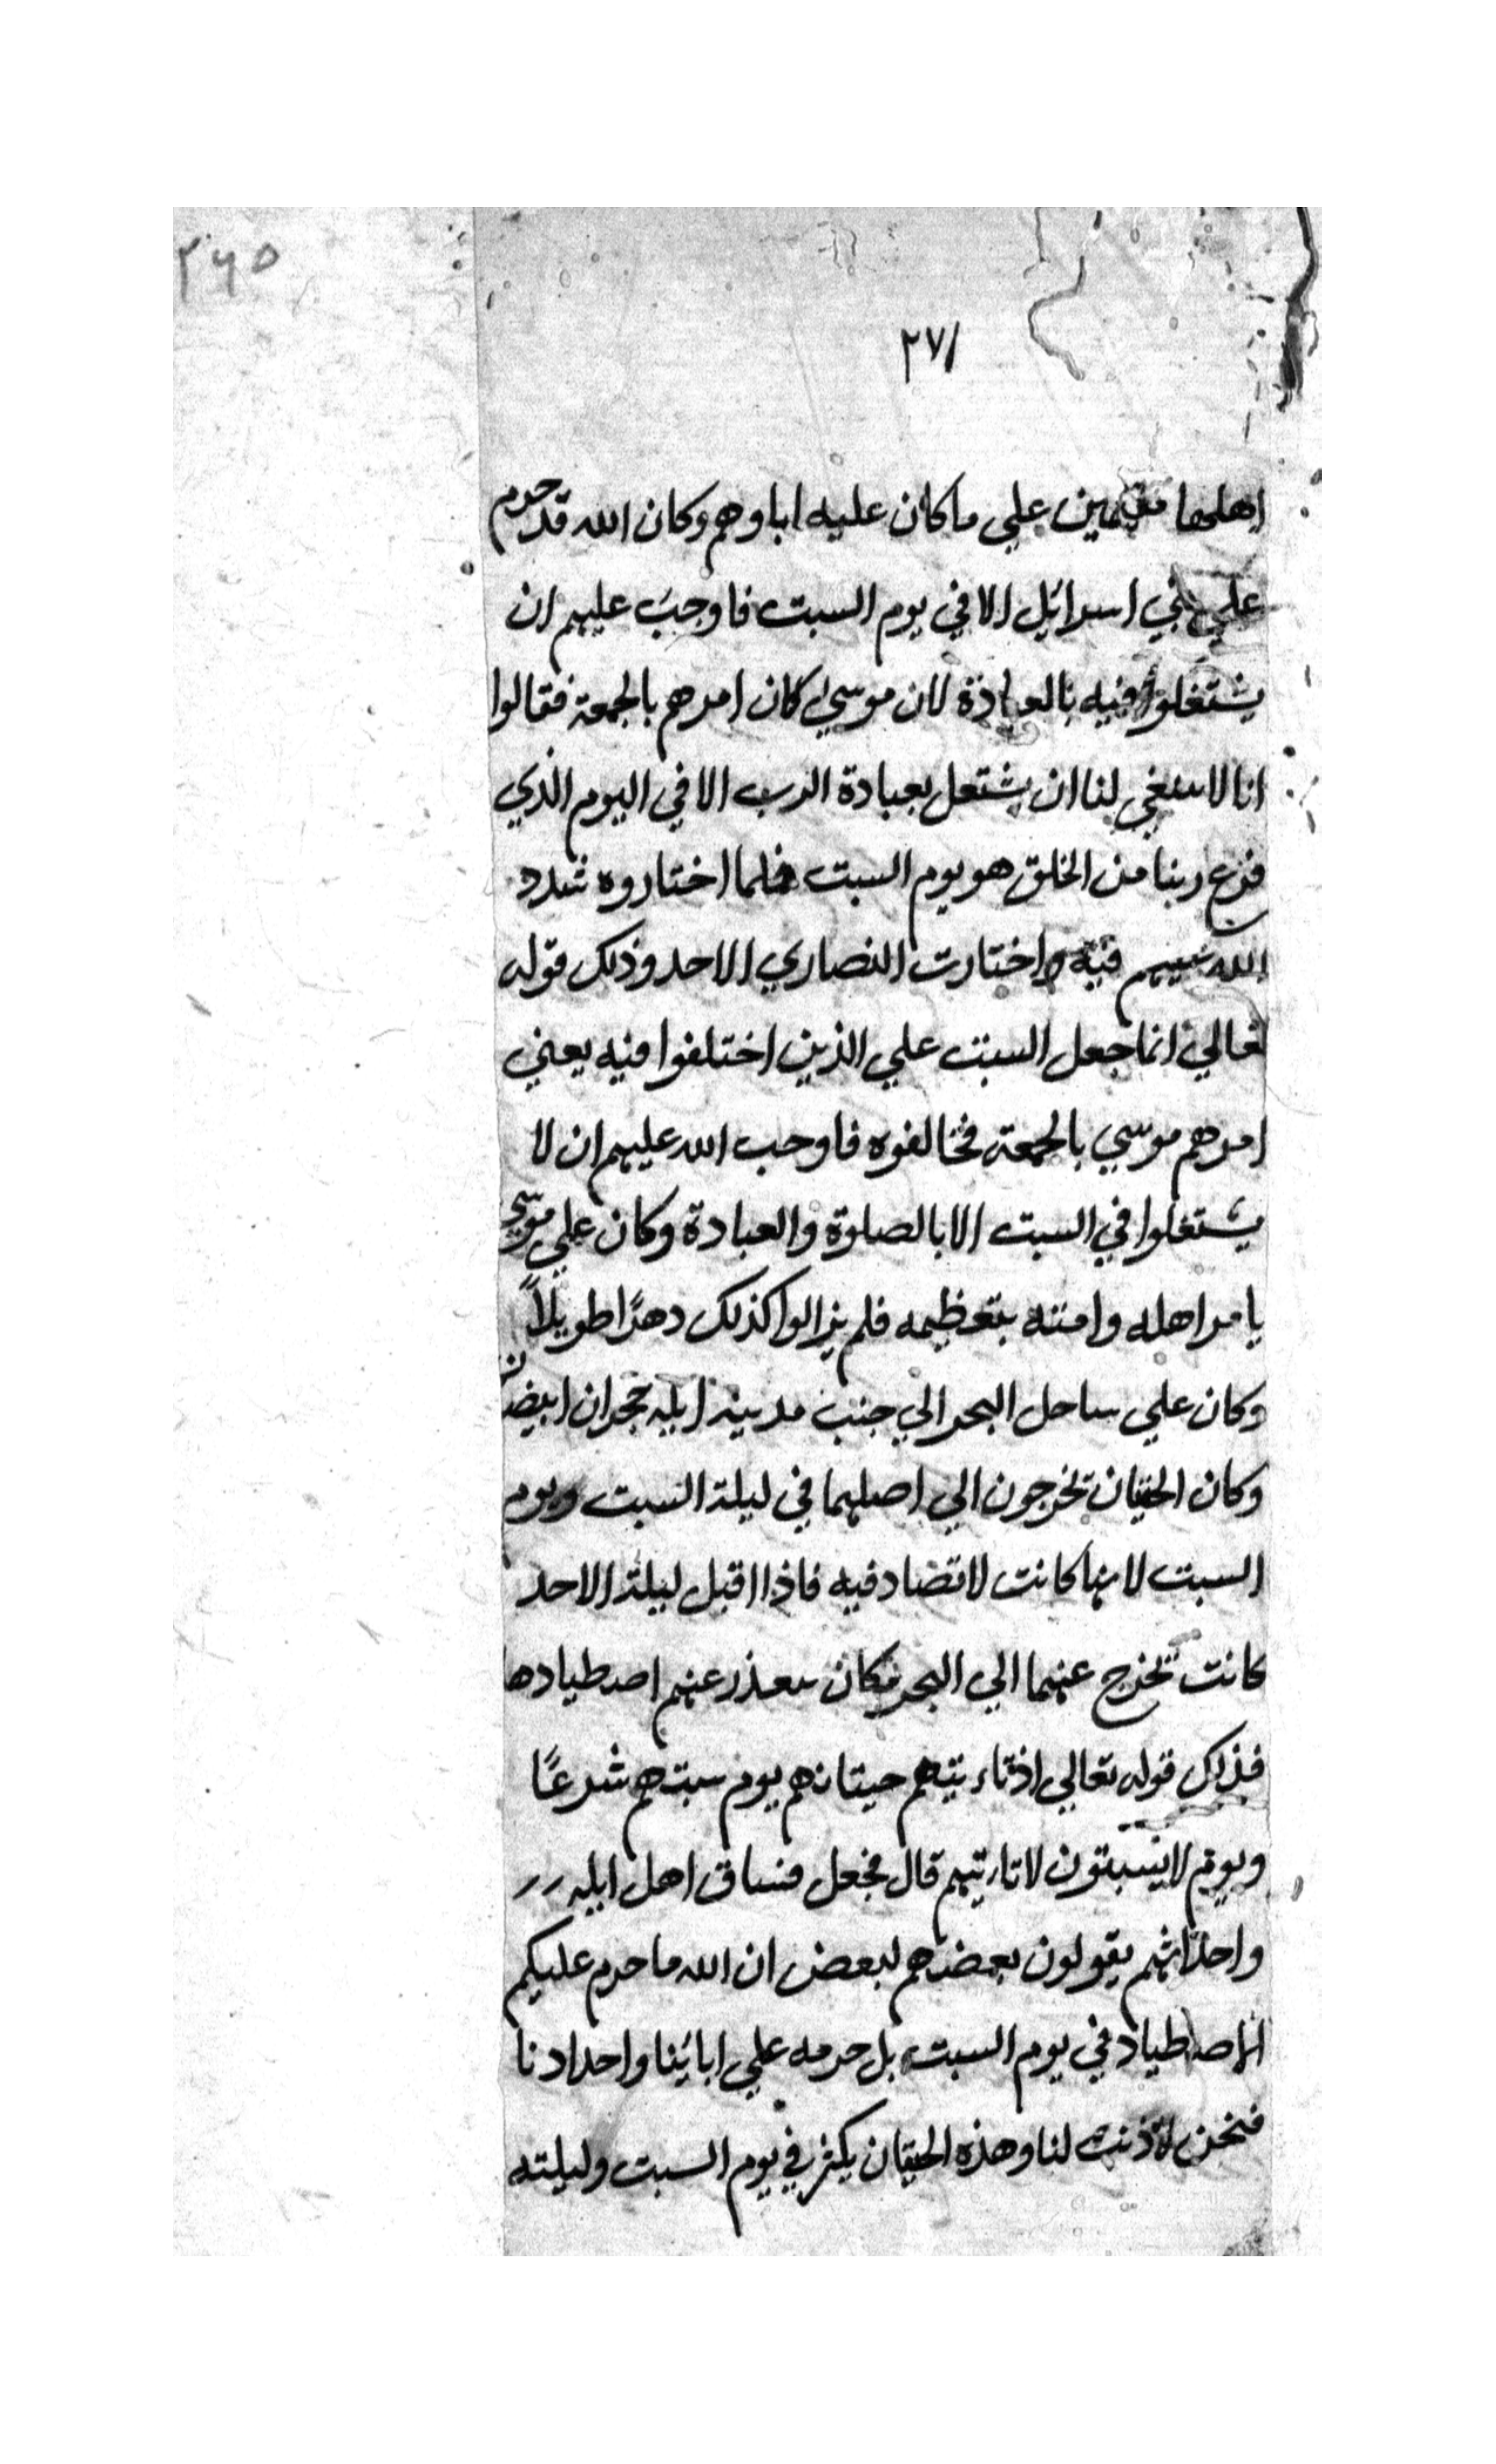 ٢٦٥
٢٧١
اهلها مقيمين علي ما كان عليه اباوهم وكان الله قد حرم
علي بني اسرائيل الا في يوم السبت فاوجب عليهم ان
يشتغلوا فيه بالعبادة لان موسي كان امرهم بالجمعة فقالوا
انا لا ينبغي لنا ان يشتغل بعبادة الرب الا في اليوم الذي
فرغ ربنا من الخلق هو يوم السبت فلما اختاروه شدد
الله عليهم فيه واختارت النصاري الاحد وذلك قوله
تعالي انما جعل السبت علي الذين اختلفوا فيه يعني
امرهم موسي بالجمعة فخالفوه فاوجب الله عليهم ان لا
يشتغلوا في السبت الا بالصلوة والعبادة وكان علي موسي
يامر اهله وامته بتعظيمه فلم يزالوا كذلك دهرًا طويلاً
وكان علي ساحل البحر الي جنب مدينة ايله حجران ابيضان
وكان الحيتان تخرجون الي اصلهما في ليلة السبت ويوم
السبت لانها كانت لا تصاد فيه فاذا اقبل ليلة الاحد
كانت تخرج عنهما الي البحر فكان يتعذر عنهم اصطيادها
فذلك قوله تعالي اذ تاءتيهم حيتانهم يوم سبتهم شرعًا
ويوم لا يسبتون لا تاءتيهم قال فجعل فساق اهل ايله
واحداثهم يقولون بعضهم لبعض ان الله ما حرم عليكم
الاصطياد في يوم السبت بل حرمه علي ابائنا واجدادنا
فنحن لا ذنب لنا وهذه الحيتان يكثر في يوم السبت وليلته